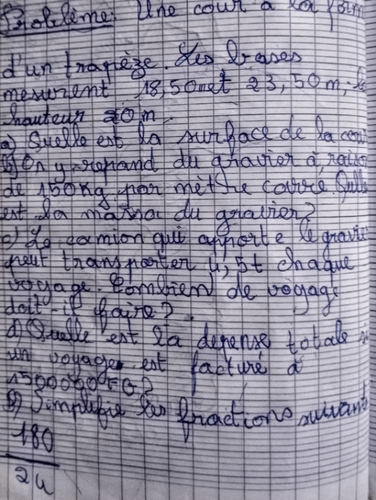 Problème: Une cour a la form
d'un trapèze. Les bases
mesurent 18,50m et 23,50m,
hauteur 20m.
a) Quelle est la surface de la cou
b) On y repand du gravier à raiso
de 150Kg par mèthe carré. Quelle
est la massa du gravier?
c) Le camion qui apporte le gravie
peut transporter 4,5t chaque
voyage. Combien de voyage
doit-il faire?
d) Quelle est la depense totale si
un voyage est facturé à
FG?
2) Simplifie les fractions suivant
180
24